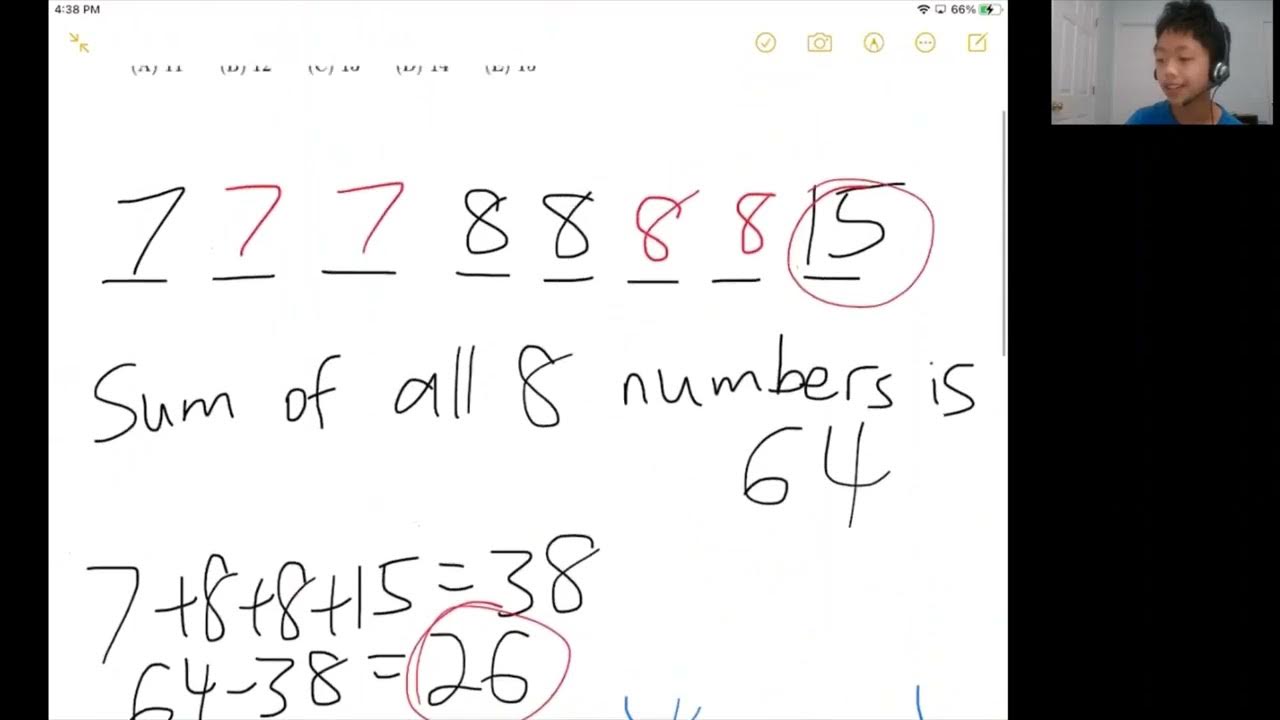 4:38 PM
66%
(A) 11 (B) 12 (C) 13 (D) 14 (E) 15
7 7 7 8 8 8 8 15
Sum of all 8 numbers is
64
7+8+8+15=38
64-38=26